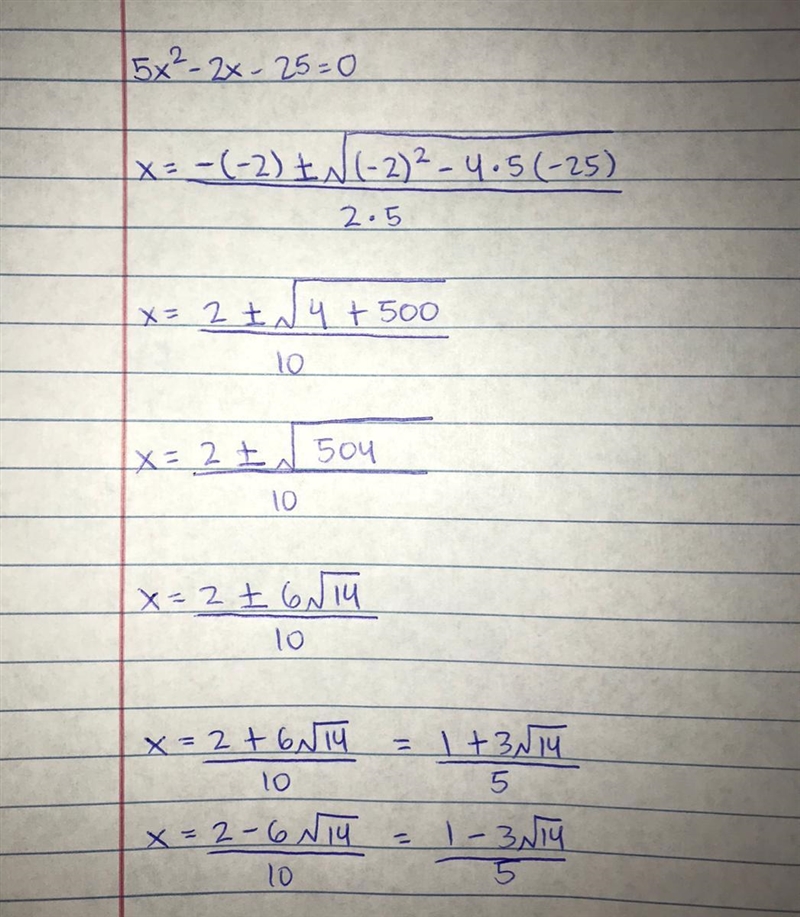 5x² - 2x - 25 = 0
x = (-(-2) ± √((-2)² - 4·5(-25))) / (2·5)
x = (2 ± √(4 + 500)) / 10
x = (2 ± √504) / 10
x = (2 ± 6√14) / 10
x = (2 + 6√14) / 10 = (1 + 3√14) / 5
x = (2 - 6√14) / 10 = (1 - 3√14) / 5